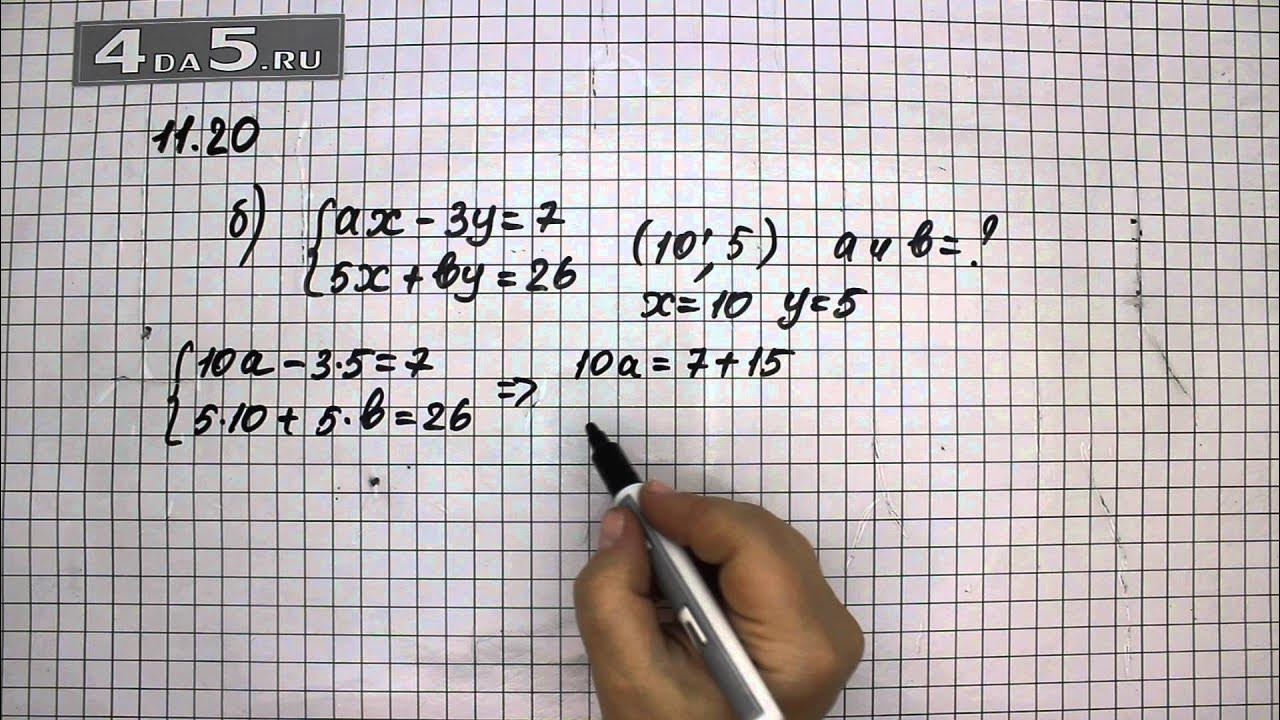 4DA5.RU
11.20
б) { ax - 3y = 7
5x + by = 26
(10; 5) a и b = ?
x = 10 y = 5
{ 10a - 3·5 = 7
5·10 + 5·b = 26
=> 10a = 7 + 15